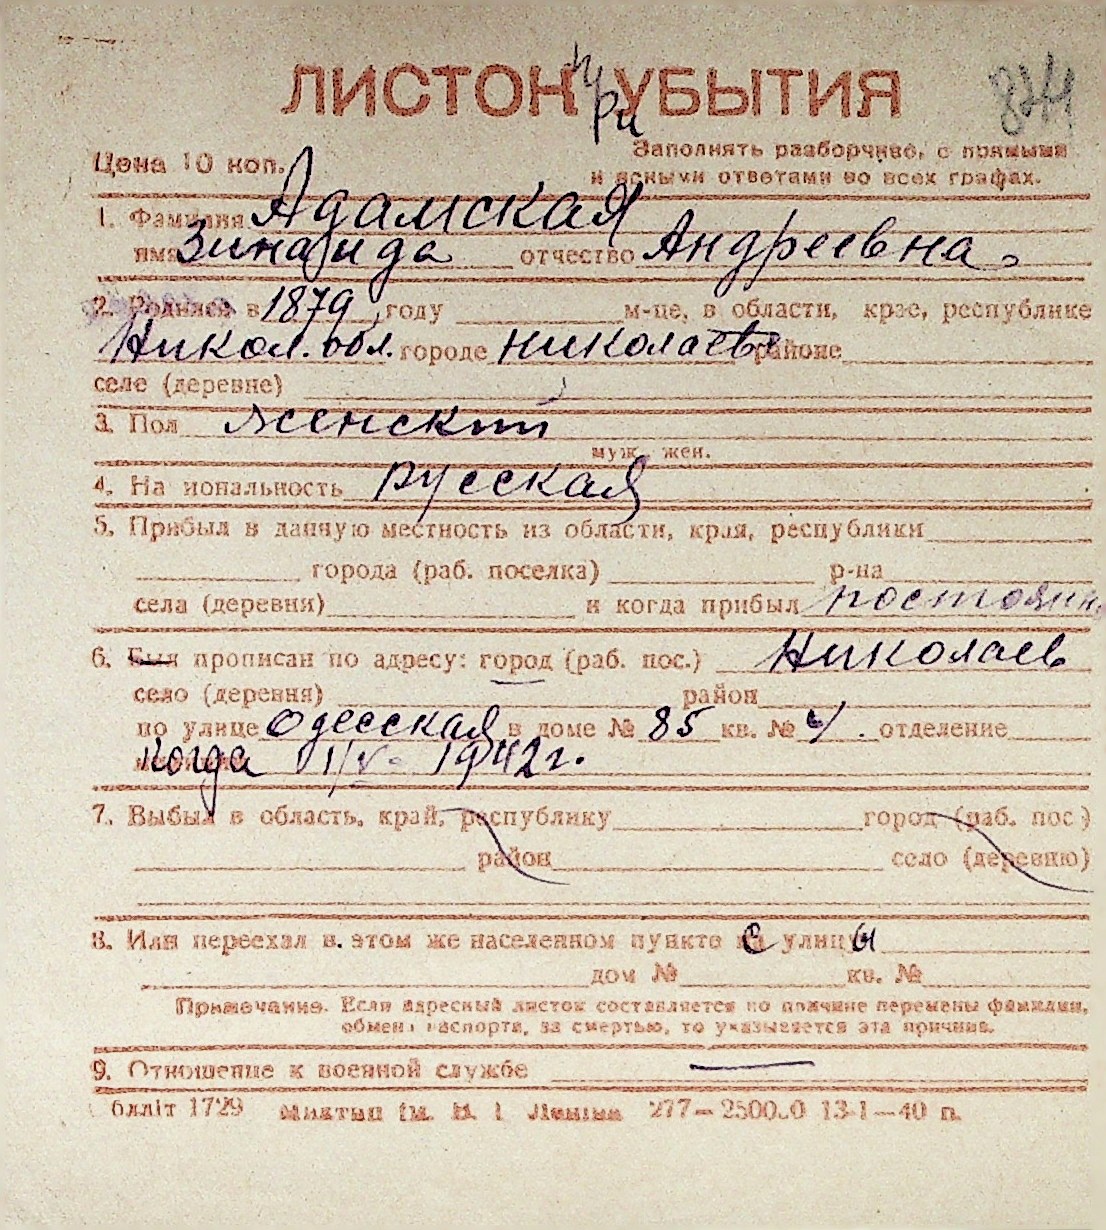 ЛИСТОК при УБЫТИЯ 844
Цена 10 коп. Заполнять разборчиво, с прямыми
и ясными ответами во всех графах.
1. Фамилия Адамская
имя Зинаида отчество Андреевна
2. Родился в 1879 году м-це, в области, крае, республике
Никол. обл. городе Николаеве районе
селе (деревне)
3. Пол женский
муж. жен.
4. Национальность русская
5. Прибыл в данную местность из области, края, республики
города (раб. поселка) р-на
села (деревня) и когда прибыл постоянн
6. Был прописан по адресу: город (раб. пос.) Николаев
село (деревня) район
по улице Одесская в доме № 85 кв. № 4. отделение
когда 1/V- 1942 г.
7. Выбыл в область, край, республику город (раб. пос.)
район село (деревню)
8. Или переехал в этом же населенном пункте с улицы
дом № кв. №
Примечание. Если адресный листок составляется по причине перемены фамилии,
обмена паспорта, за смертью, то указывается эта причина.
9. Отношение к военной службе —
блліт 1729 ім. В. І. Леніна 277—250000 13-1—40 п.